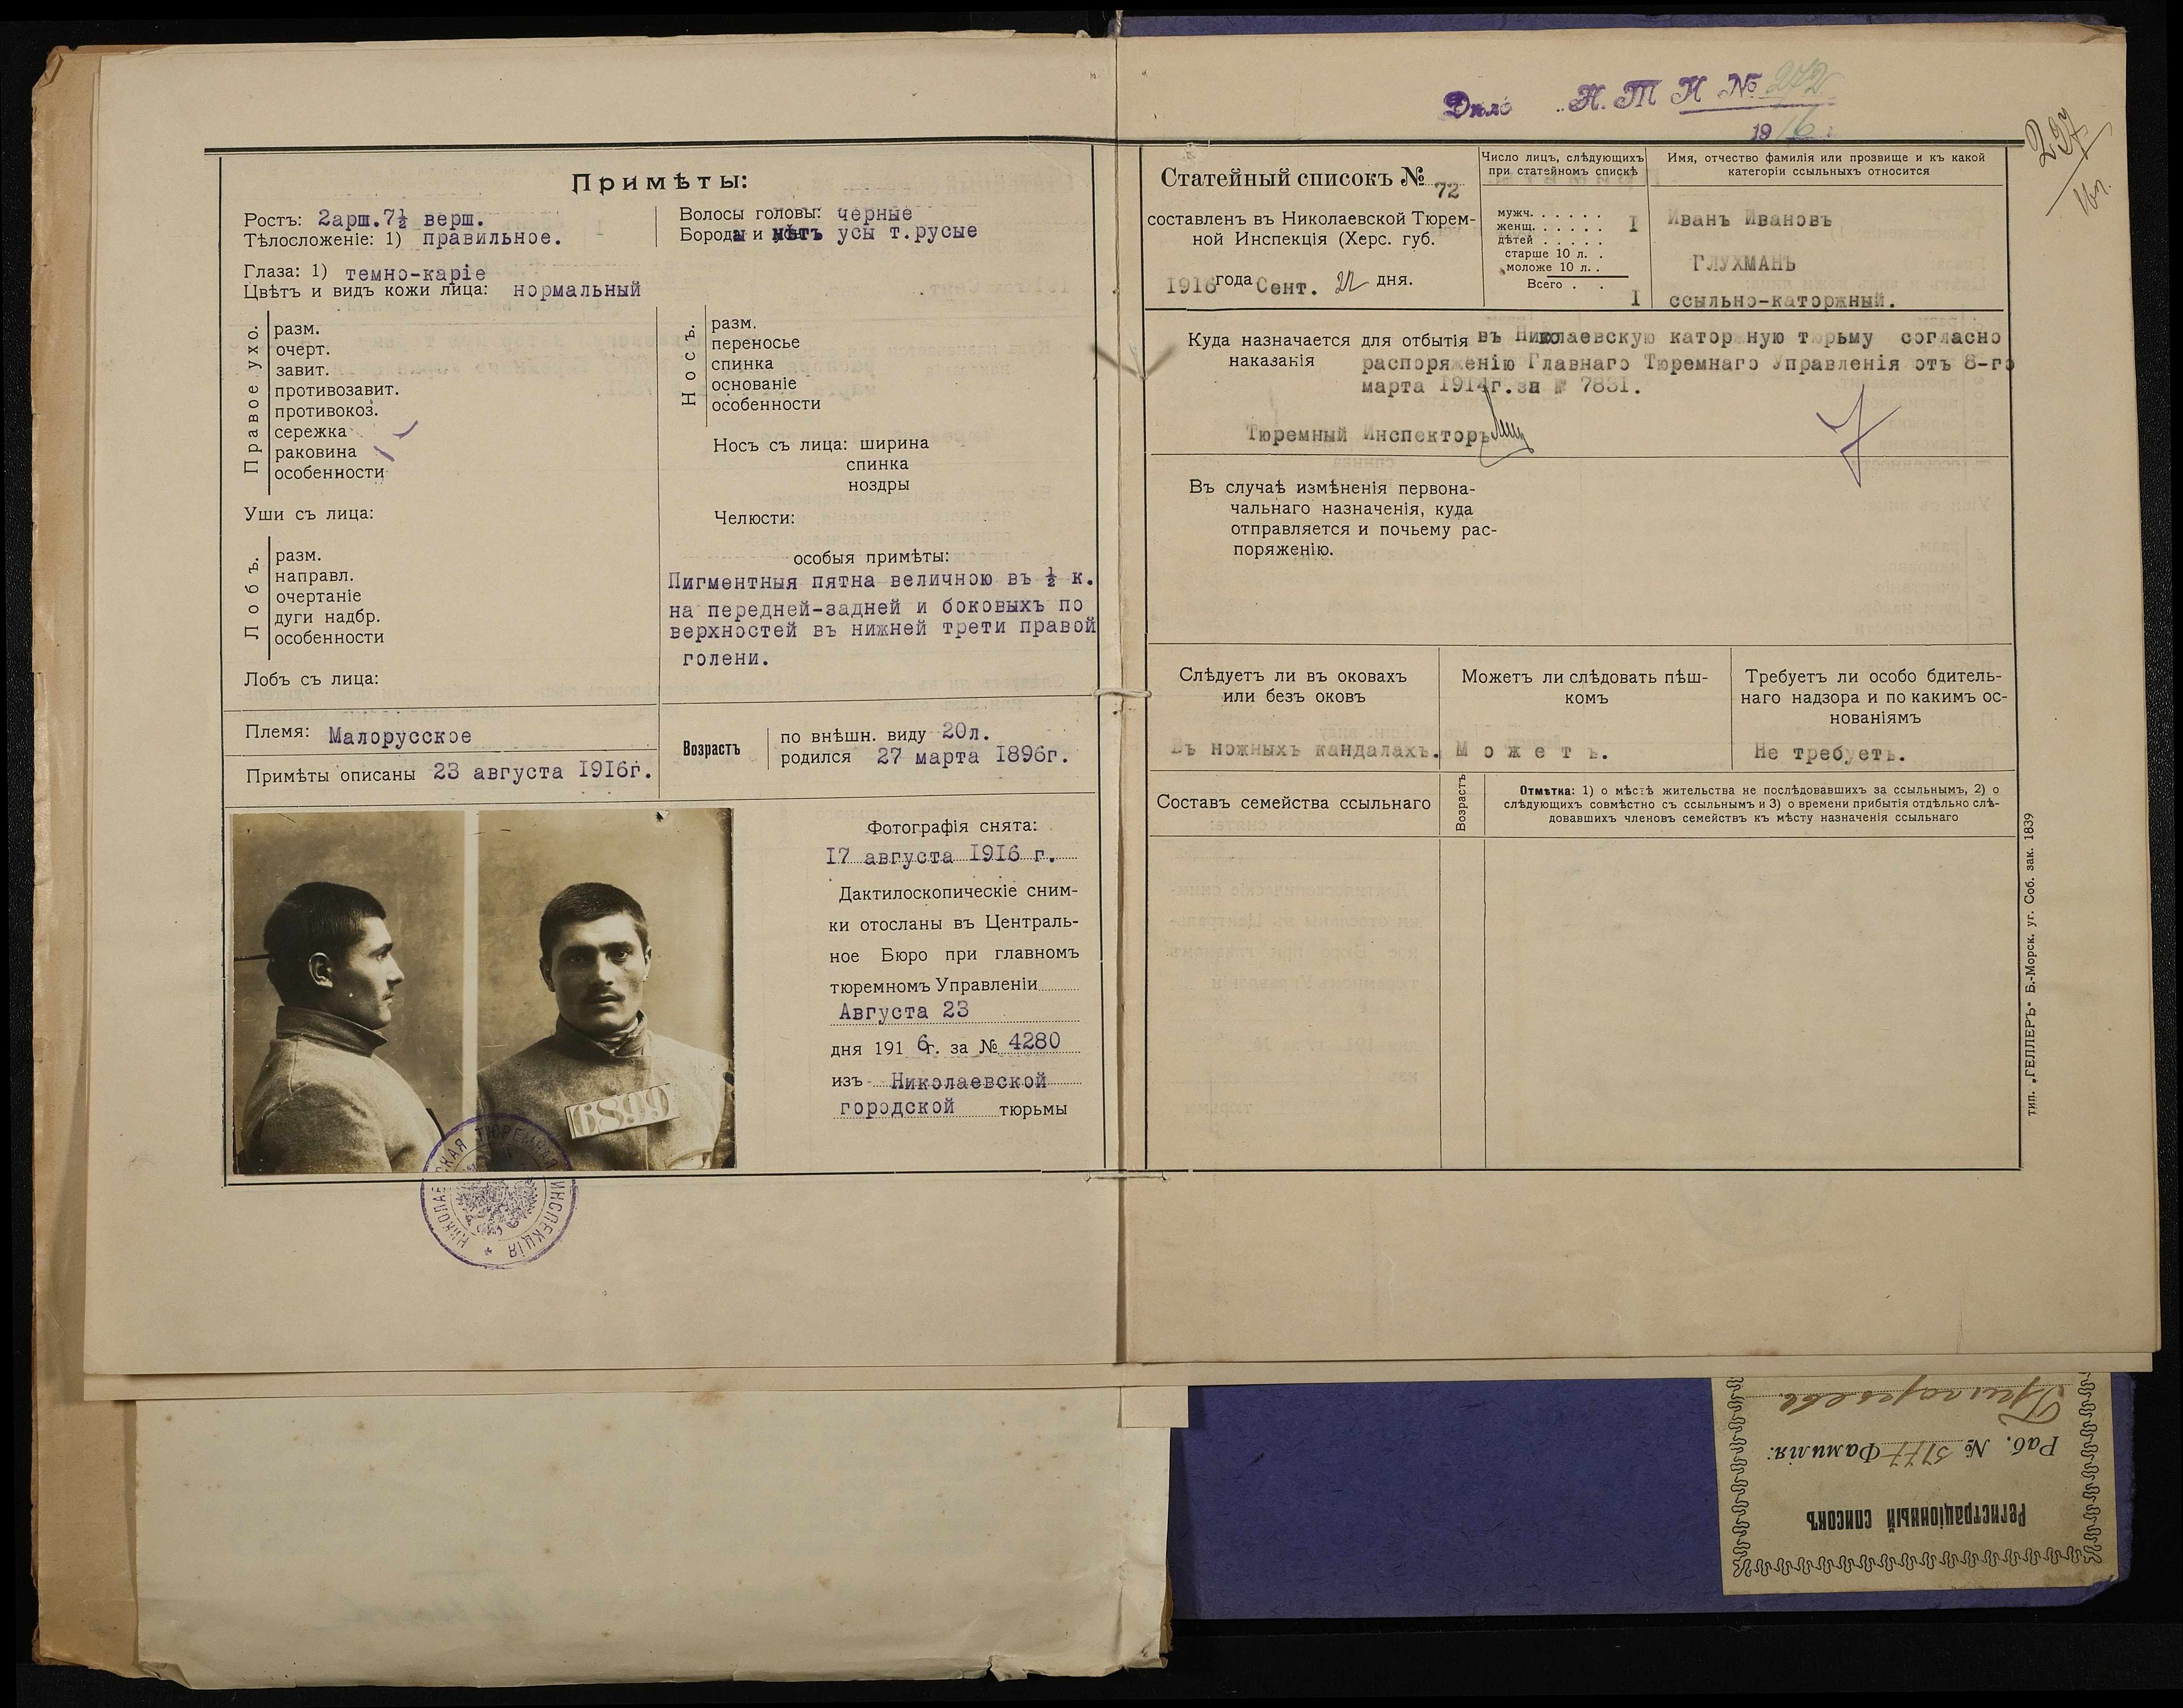 Примѣты:
Ростъ: 2арш.7½ верш.
Тѣлосложеніе: 1) правильное.
Волосы головы: черные
Бороды и нѣтъ усы т.русые
Глаза: 1) темно-каріе
Цвѣтъ и видъ кожи лица: нормальный
Правое ухо.
разм.
очерт.
завит.
противозавит.
противокоз.
сережка
раковина
особенности
Носъ.
разм.
переносье
спинка
основаніе
особенности
Носъ съ лица: ширина
спинка
ноздры
Уши съ лица:
Челюсти:
Лобъ.
разм.
направл.
очертаніе
дуги надбр.
особенности
Лобъ съ лица:
особыя примѣты:
Пигментныя пятна величною въ ½ к.
на передней-задней и боковыхъ по
верхностей въ нижней трети правой
голени.
Племя: Малорусское
Примѣты описаны 23 августа 1916г.
Возрастъ
по внѣшн. виду 20л.
родился 27 марта 1896г.
6899
НИКОЛАЕВСКАЯ ТЮРЕМНАЯ ИНСПЕКЦІЯ *
Фотографія снята:
17 августа 1916 г.
Дактилоскопическіе сним-
ки отосланы въ Централь-
ное Бюро при главномъ
тюремномъ Управленіи
Августа 23
дня 1916г. за № 4280
изъ Николаевской
городской тюрьмы
Дѣло Н. Т И № 272
1916 г
237
Статейный списокъ № 72
составленъ въ Николаевской Тюрем-
ной Инспекція (Херс. губ.
1916 года Сент. 22 дня.
Число лицъ, слѣдующихъ
при статейномъ спискѣ
мужч. . . . . . I
женщ. . . . . .
дѣтей . . . . .
старше 10 л. .
моложе 10 л. .
Всего . . I
Имя, отчество фамилія или прозвище и къ какой
категоріи ссыльныхъ относится
Иванъ Ивановъ
ГЛУХМАНЪ
ссыльно-каторжный.
Куда назначается для отбытія
наказанія
въ Николаевскую каторжную тюрьму согласно
распоряженію Главнаго Тюремнаго Управленія отъ 8-го
марта 1914г. за № 7831.
Тюремный Инспекторъ
Въ случаѣ измѣненія первона-
чальнаго назначенія, куда
отправляется и почьему рас-
поряженію.
Слѣдуетъ ли въ оковахъ
или безъ оковъ
Въ ножныхъ кандалахъ.
Можетъ ли слѣдовать пѣш-
комъ
Можетъ.
Требуетъ ли особо бдитель-
наго надзора и по какимъ ос-
нованіямъ
Не требуетъ.
Составъ семейства ссыльнаго
Возрастъ
Отмѣтка: 1) о мѣстѣ жительства не послѣдовавшихъ за ссыльнымъ, 2) о
слѣдующихъ совмѣстно съ ссыльнымъ и 3) о времени прибытія отдѣльно слѣ-
довавшихъ членовъ семействъ къ мѣсту назначенія ссыльнаго
тип. „ГЕЛЛЕРЪ“ Б.-Морск. уг. Соб. зак. 1839
Регистраціонный списокъ
Раб. № Фамилія: